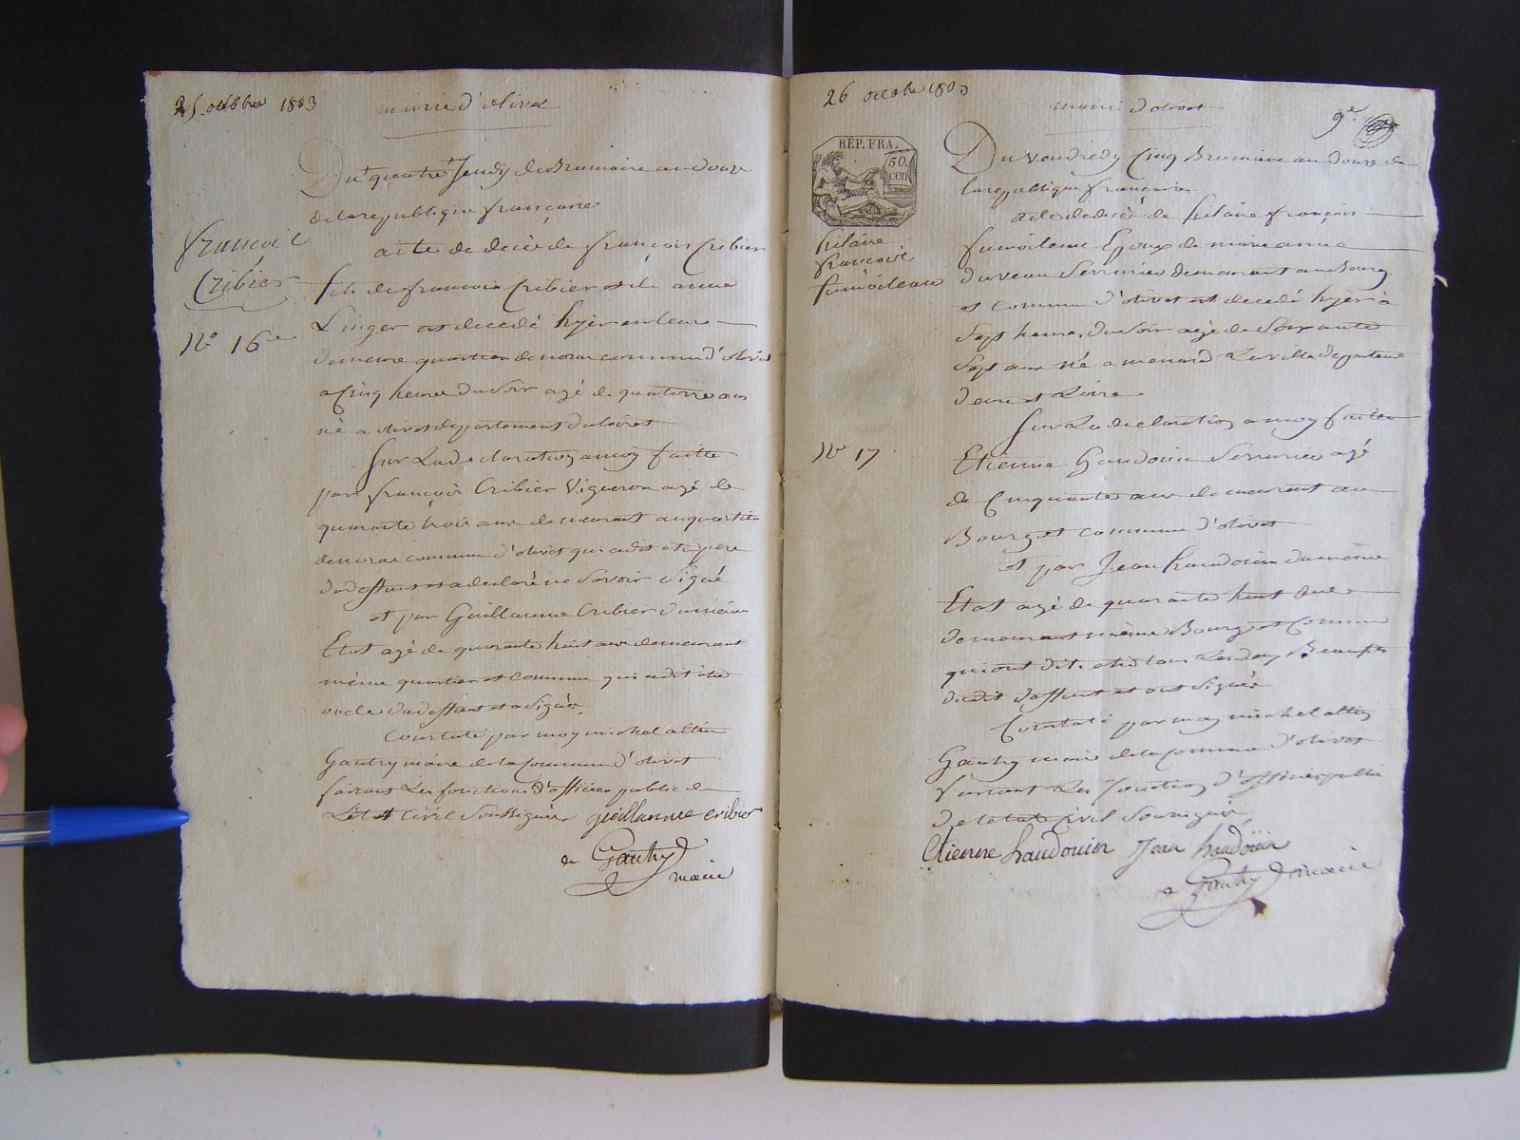 25 octobre 1803
mairie d'olivet
Du quatre Jeudy de Brumaire an douze
de la republique françoise
françois
Cribier
No 16e
acte de decès de françois Cribier
fils de françois Cribier et de anne
Linger est decedé hyer en leur
demeure quartier de commune d'olivet
a Cinq heures du Soir agé de quatorze ans
né a olivet departement du loiret
Sur La declaration a moy faitte
par françois Cribier Vigneron agé de
quarante trois ans demeurant au quartier
commune d'olivet qui a dit etre pere
du deffunt et a declaré ne Savoir Signé
et par Guillaume Cribier du même
Etat agé de quarante huit ans demeurant
même quartier et commune qui a dit être
oncle du deffunt et a Signé
Constaté par moy michel
Gautry maire de la Commune d'olivet
faisant Les fonctions d'officier public de
L'etat Civil Soussigné guillaume cribier
Gautry
maire
26 octobre 1803
mairie d'olivet
9e
REP. FRA.
50.
CEN
Du Vendredy Cinq Brumaire an Douze de
la republique françoise
hilaire
françois
acte de decès de hilaire françois
Epoux de marianne
Serrurier demeurant au Bourg
et commune d'olivet est decedé hyer a
Sept heures du Soir agé de Soixante
Sept ans né a menard La ville departement
de Loire
Sur La declaration a moy faitte
No 17
Etienne haudouin Serrurier agé
de Cinquante ans demeurant au
Bourg et commune d'olivet
et par Jean haudouin du même
Etat agé de quarante huit ans
demeurant même Bourg et Commune
qui ont dit être tous Les deux
dudit deffunt et ont Signés
Constaté par moy michel
Gautry maire de la Commune d'olivet
faisant Les fonctions d'officier public
de letat Civil Soussigné
Etienne haudouin Jean haudoüin
Gautry maire